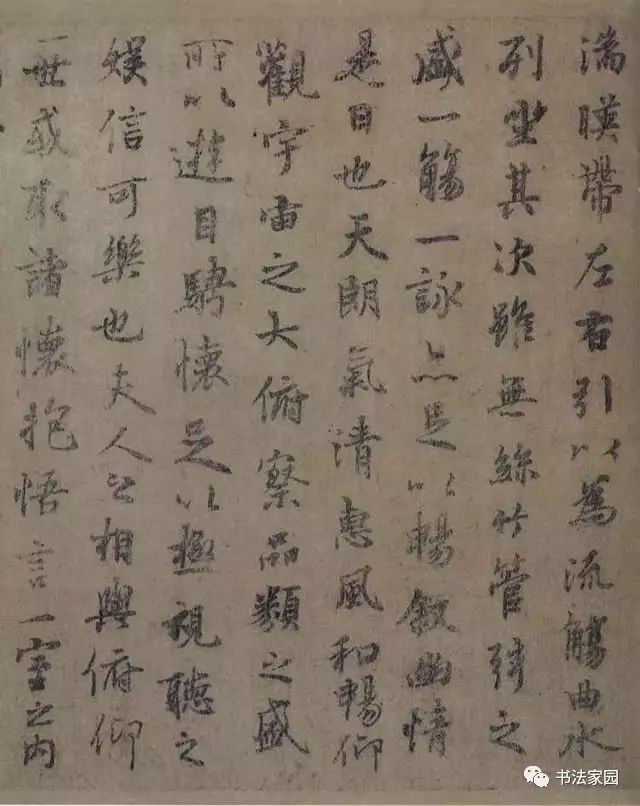 湍暎帶左右引以為流觴曲水
列坐其次雖無絲竹管弦之
盛一觴一詠亦足以暢叙幽情
是日也天朗氣清惠風和暢仰
觀宇宙之大俯察品類之盛
所以遊目騁懷足以極視聽之
娛信可樂也夫人之相與俯仰
一世或取諸懷抱悟言一室之內
书法家园